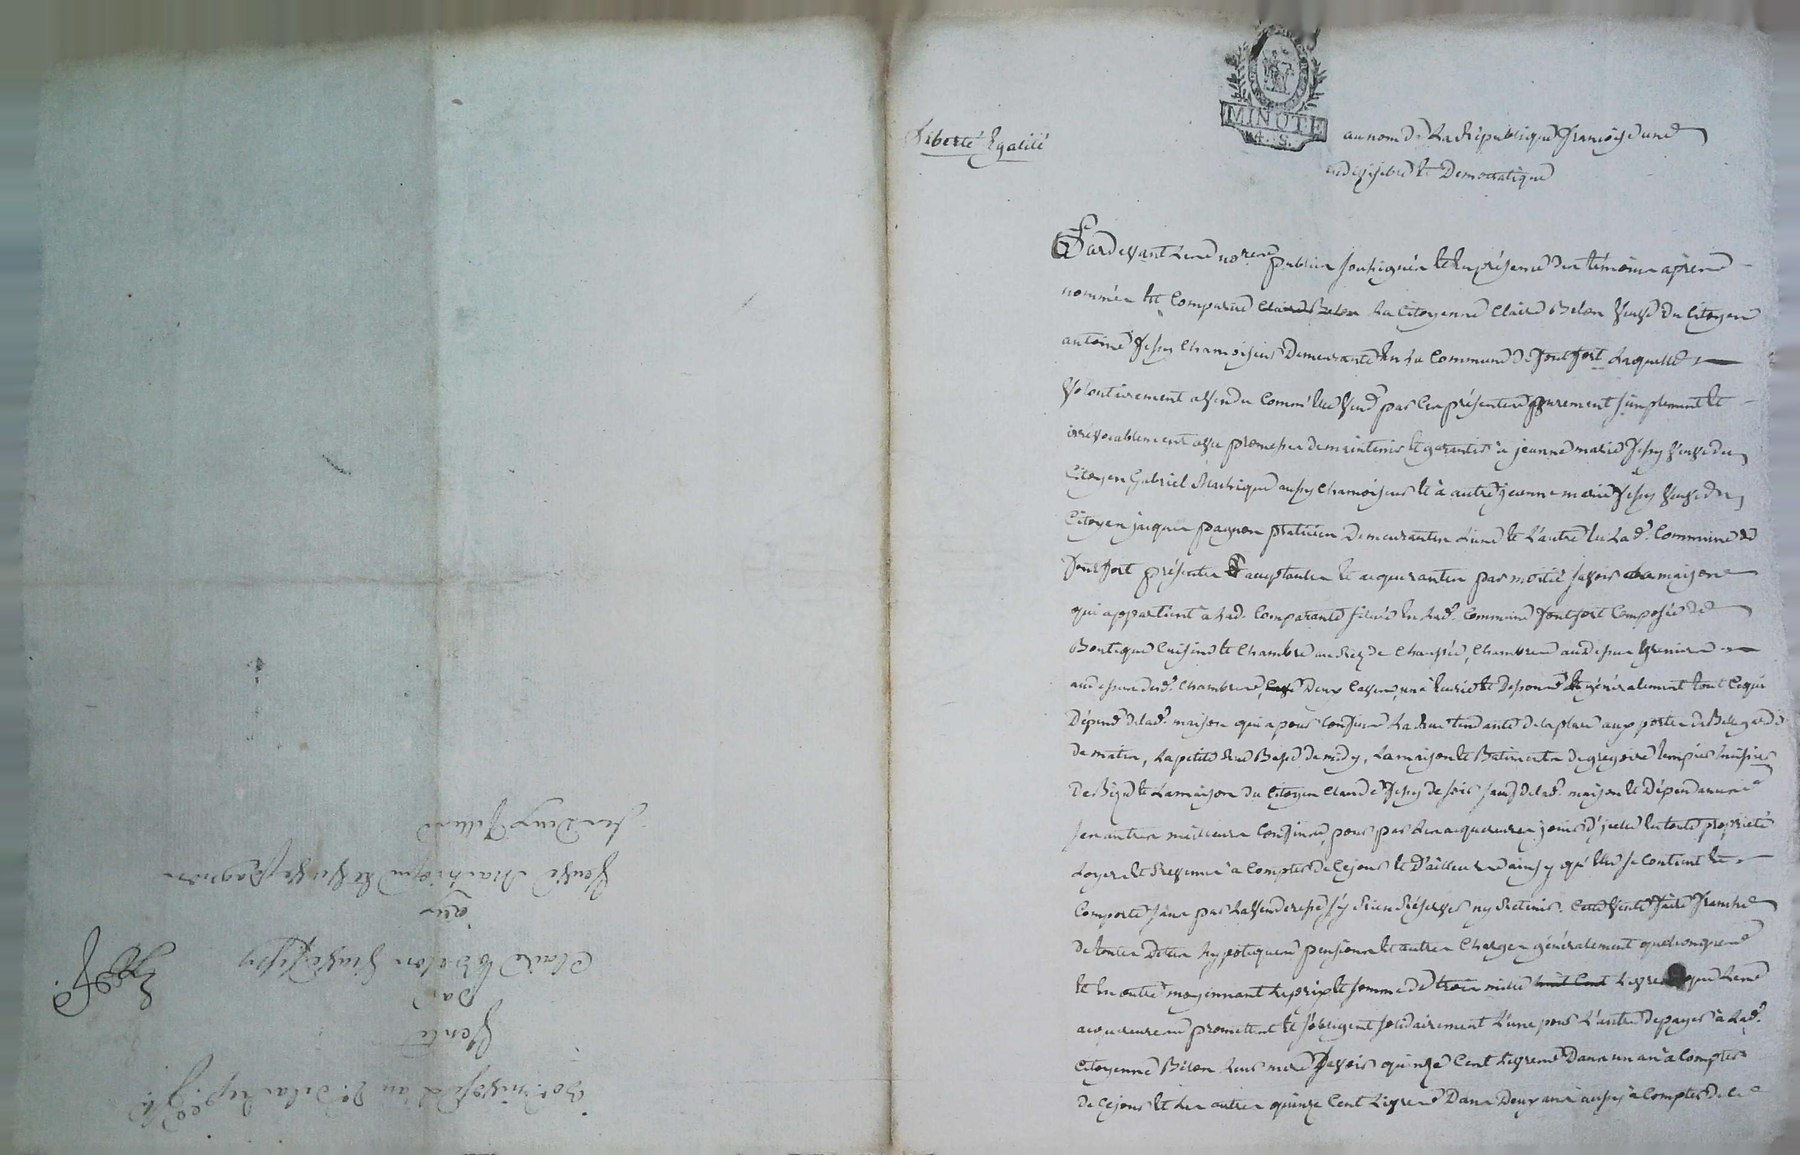 Liberté Egalité
MINUTE
4. S.
au nom de La République françoise une
indivisible et Democratique
Pardevant Les nores publics soussignés et en présence des témoins après
nommés est Comparue La Citoyenne Claire Belon Veuve du Citoyen
antoine Chamoiseur Demeurante en La Commune de Montfort Laquelle
Volontairement a vendu Comm'elle vend par Ces présentes purement simplement et
irrevocablement avec promesse de maintenir et garantir à jeanne marie Veuve du
Citoyen Gabriel aussy Chamoiseur et à autre jeanne marie Veuve du
Citoyen jacques pagnon praticien Demeurantes L'une et L'autre en Lad. Commune de
présentes acceptantes et acquerantes par moitié savoir La maison
qui appartient a Lad. Comparante située en Lad. Commune Composée de
Boutique Cuisine et Chambre au Rez de Chaussée, Chambres au dessus greniers
au dessus desd. Chambres, Deux Caves, une Ecurie et generalement tout Ce qui
Dépend de lad. maison qui a pour Confins La Rue tendante de la place aux portes de Belegarde
de matin, La petite Rue Basse de midy, La maison et Batiments de gregoire
de Bize et La maison du Citoyen Claude de soir sauf de lad. maison et Dépendances
ses autres meilleurs Confins, pour par Les acquereures jouir d'icelle en toute propriété
Loyers et Revenus à Compter de Ce jour et D'ailleurs ainsy qu'elle se Contient et
Comporte sans par La venderesse s'y Rien Réserver ny Retenir. Cette vente faite franche
de toutes Dettes hypoteques pensions et autres Charges généralement quelconques
et En outre moyennant Le prix et somme de trois mille Livres que Les
acquereures promettent et s'obligent solidairement L'une pour L'autre de payer à Lad.
Citoyenne Belon Leur mère savoir quinze Cent Livres Dans un an à Compter
de Ce jour et Les autres quinze Cent Livres Dans Deux ans aussy à Compter de Ce
nivose an 7e de la Rep.
Vente
par
Claire Belon Veuve
aux
Veuve et Veuve Pagnon
ses Deux filles